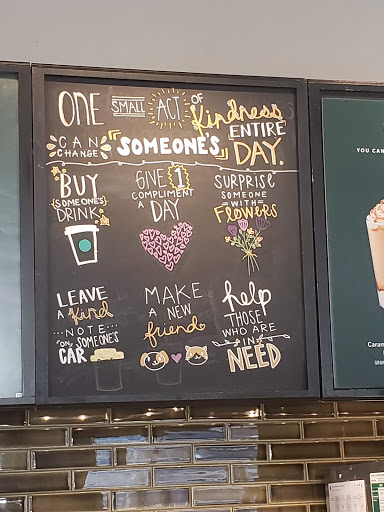 ONE SMALL ACT OF Kindness
CAN CHANGE SOMEONE'S ENTIRE DAY.
BUY SOMEONE'S DRINK
GIVE 1 COMPLIMENT A DAY
SURPRISE SOMEONE WITH FLOWERS
LEAVE
A Kind
NOTE
ON SOMEONE'S
CAR
MAKE
A NEW
friend
help
THOSE
WHO ARE
IN
NEED
YOU CAN
Caram